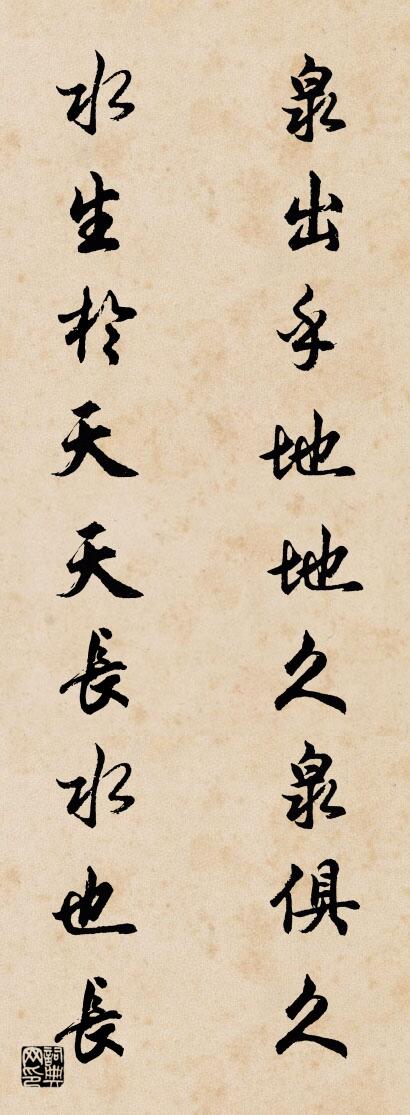 泉出乎地地久泉俱久
水生於天天長水也長
詞典網印